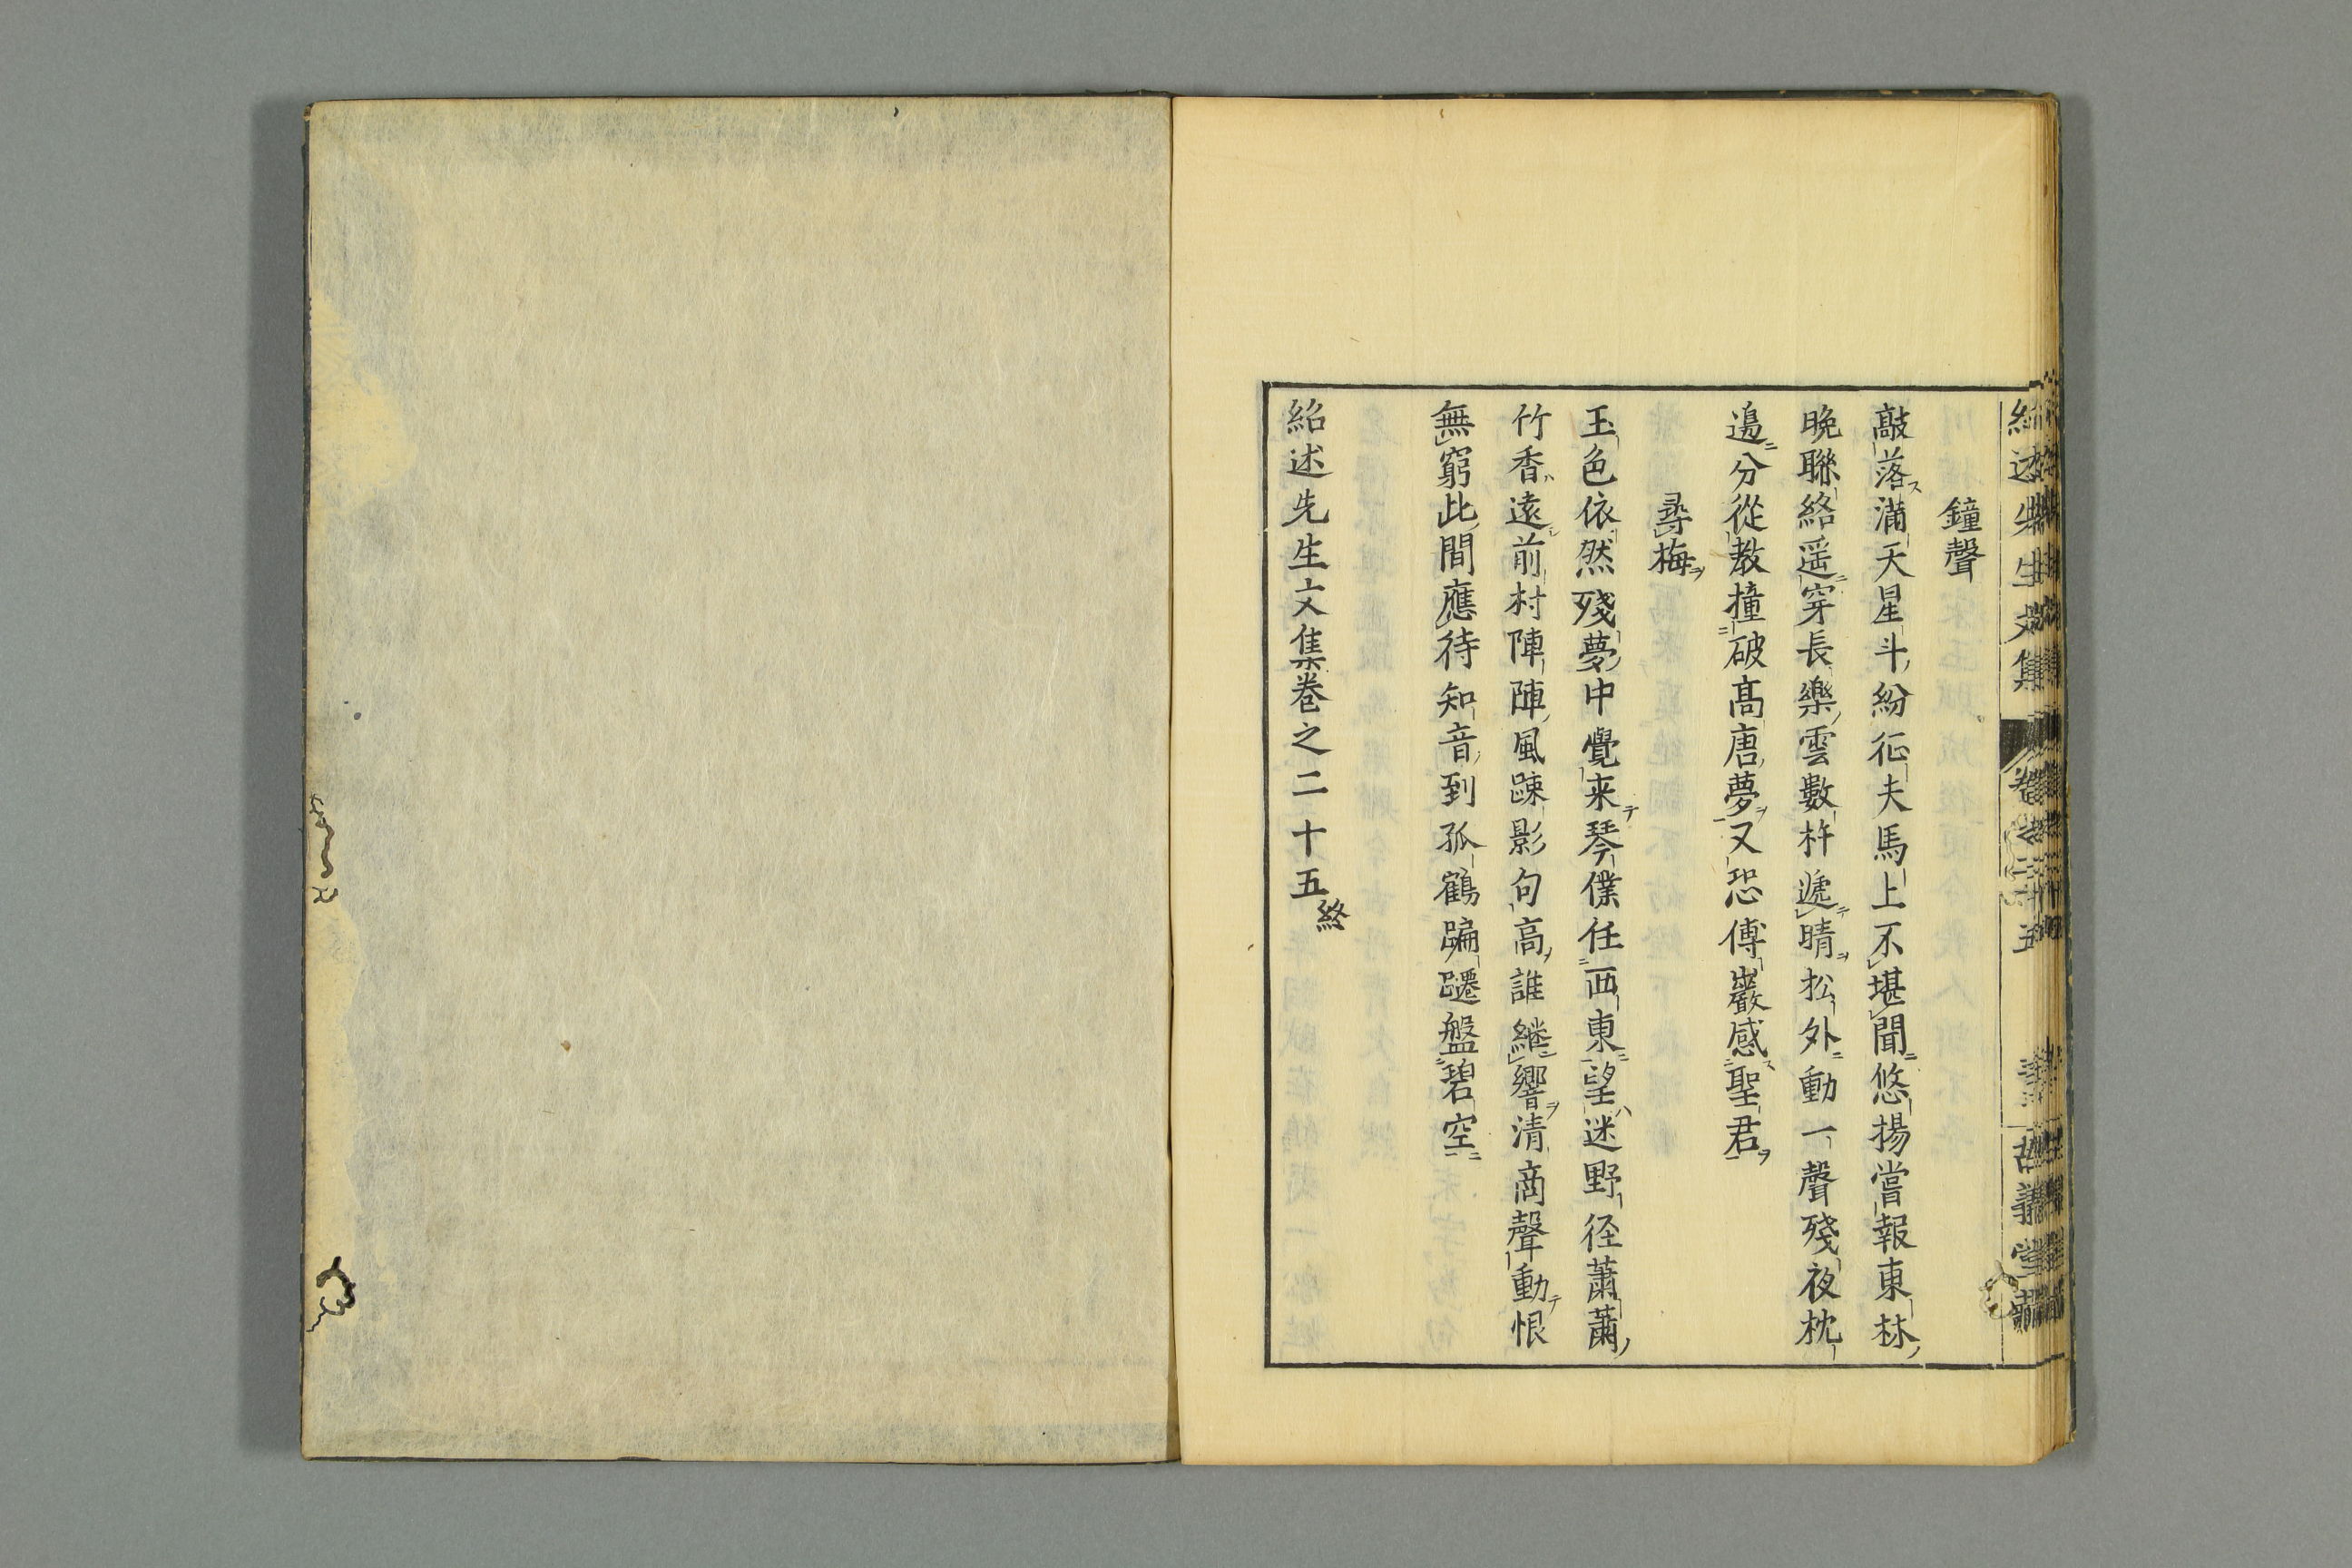 紹述先生文集 卷之二十五 古義堂藏
鐘聲
敲落滿天星斗紛征夫馬上不堪聞悠揚嘗報東林
晩聯絡遥穿長樂雲數杵遞晴松外動一聲殘夜枕
邉分從教撞破髙唐夢又恐傅巖感聖君
尋梅
玉色依然殘夢中覺来琴僕任西東望迷野径蕭蕭
竹香遠前村陣陣風踈影句高誰継響清商聲動恨
無窮此間應待知音到孤鶴蹁躚盤碧空
紹述先生文集卷之二十五終